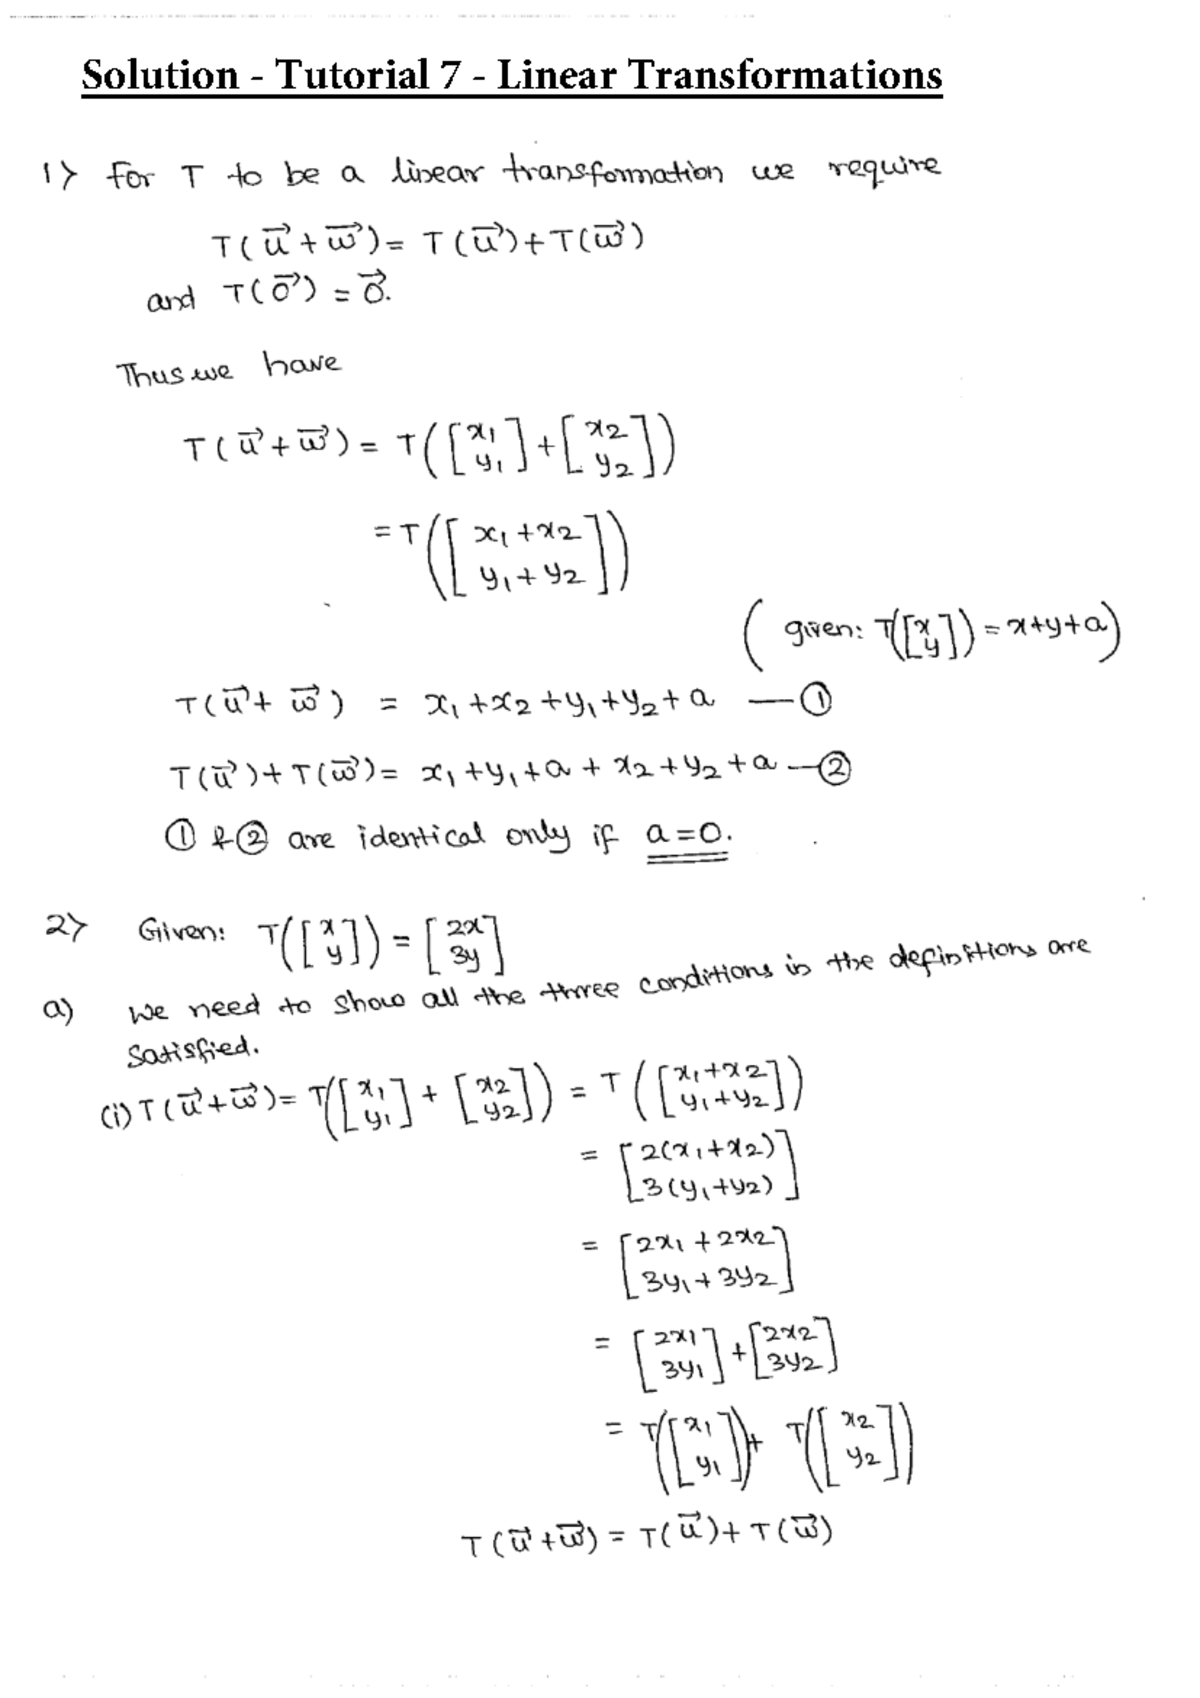 Solution - Tutorial 7 - Linear Transformations
1) For T to be a linear transformation we require
T(u⃗ + w⃗) = T(u⃗) + T(w⃗)
and T(0⃗) = 0⃗.
Thus we have
T(u⃗ + w⃗) = T([x₁ y₁] + [x₂ y₂])
= T([x₁ + x₂ y₁ + y₂])
(given: T([x y]) = x + y + a)
T(u⃗ + w⃗) = x₁ + x₂ + y₁ + y₂ + a — ①
T(u⃗) + T(w⃗) = x₁ + y₁ + a + x₂ + y₂ + a — ②
① & ② are identical only if a = 0.
2) Given: T([x y]) = [2x 3y]
a) We need to show all the three conditions in the definitions are
satisfied.
(i) T(u⃗ + w⃗) = T([x₁ y₁] + [x₂ y₂]) = T([x₁ + x₂ y₁ + y₂])
= [2(x₁ + x₂) 3(y₁ + y₂)]
= [2x₁ + 2x₂ 3y₁ + 3y₂]
= [2x₁ 3y₁] + [2x₂ 3y₂]
= T([x₁ y₁]) + T([x₂ y₂])
T(u⃗ + w⃗) = T(u⃗) + T(w⃗)